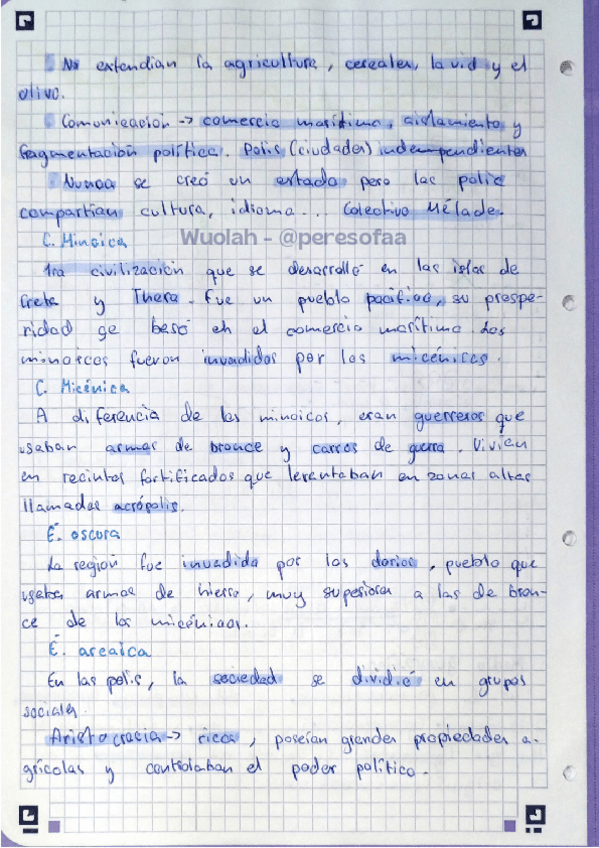 No extendian la agricultura, cereales, la vid y el
olivo.
Comunicación -> comercio marítimo, aislamiento y
fragmentación política. Polis (ciudades) independientes
Nunca se creó un estado pero las polis
compartían cultura, idioma... Colectivo Hélade.
C. Minoica
Wuolah - @peresofaa
1ra civilización que se desarrolló en las islas de
Creta y Thera. Fue un pueblo pacífico, su prospe-
ridad se basó en el comercio marítimo. Los
minoicos fueron invadidos por los micénicos.
C. Micénica
A diferencia de los minoicos, eran guerreros que
usaban armas de bronce y carros de guerra. Vivían
en recintos fortificados que levantaban en zonas altas
llamadas acrópolis.
É. oscura
La región fue invadida por los dorios, pueblo que
usaba armas de hierro, muy superiores a las de bron-
ce de los micénicos.
É. arcaica
En las polis, la sociedad se dividió en grupos
sociales.
Aristocracia -> ricos, poseían grandes propiedades a-
grícolas y controlaban el poder político.